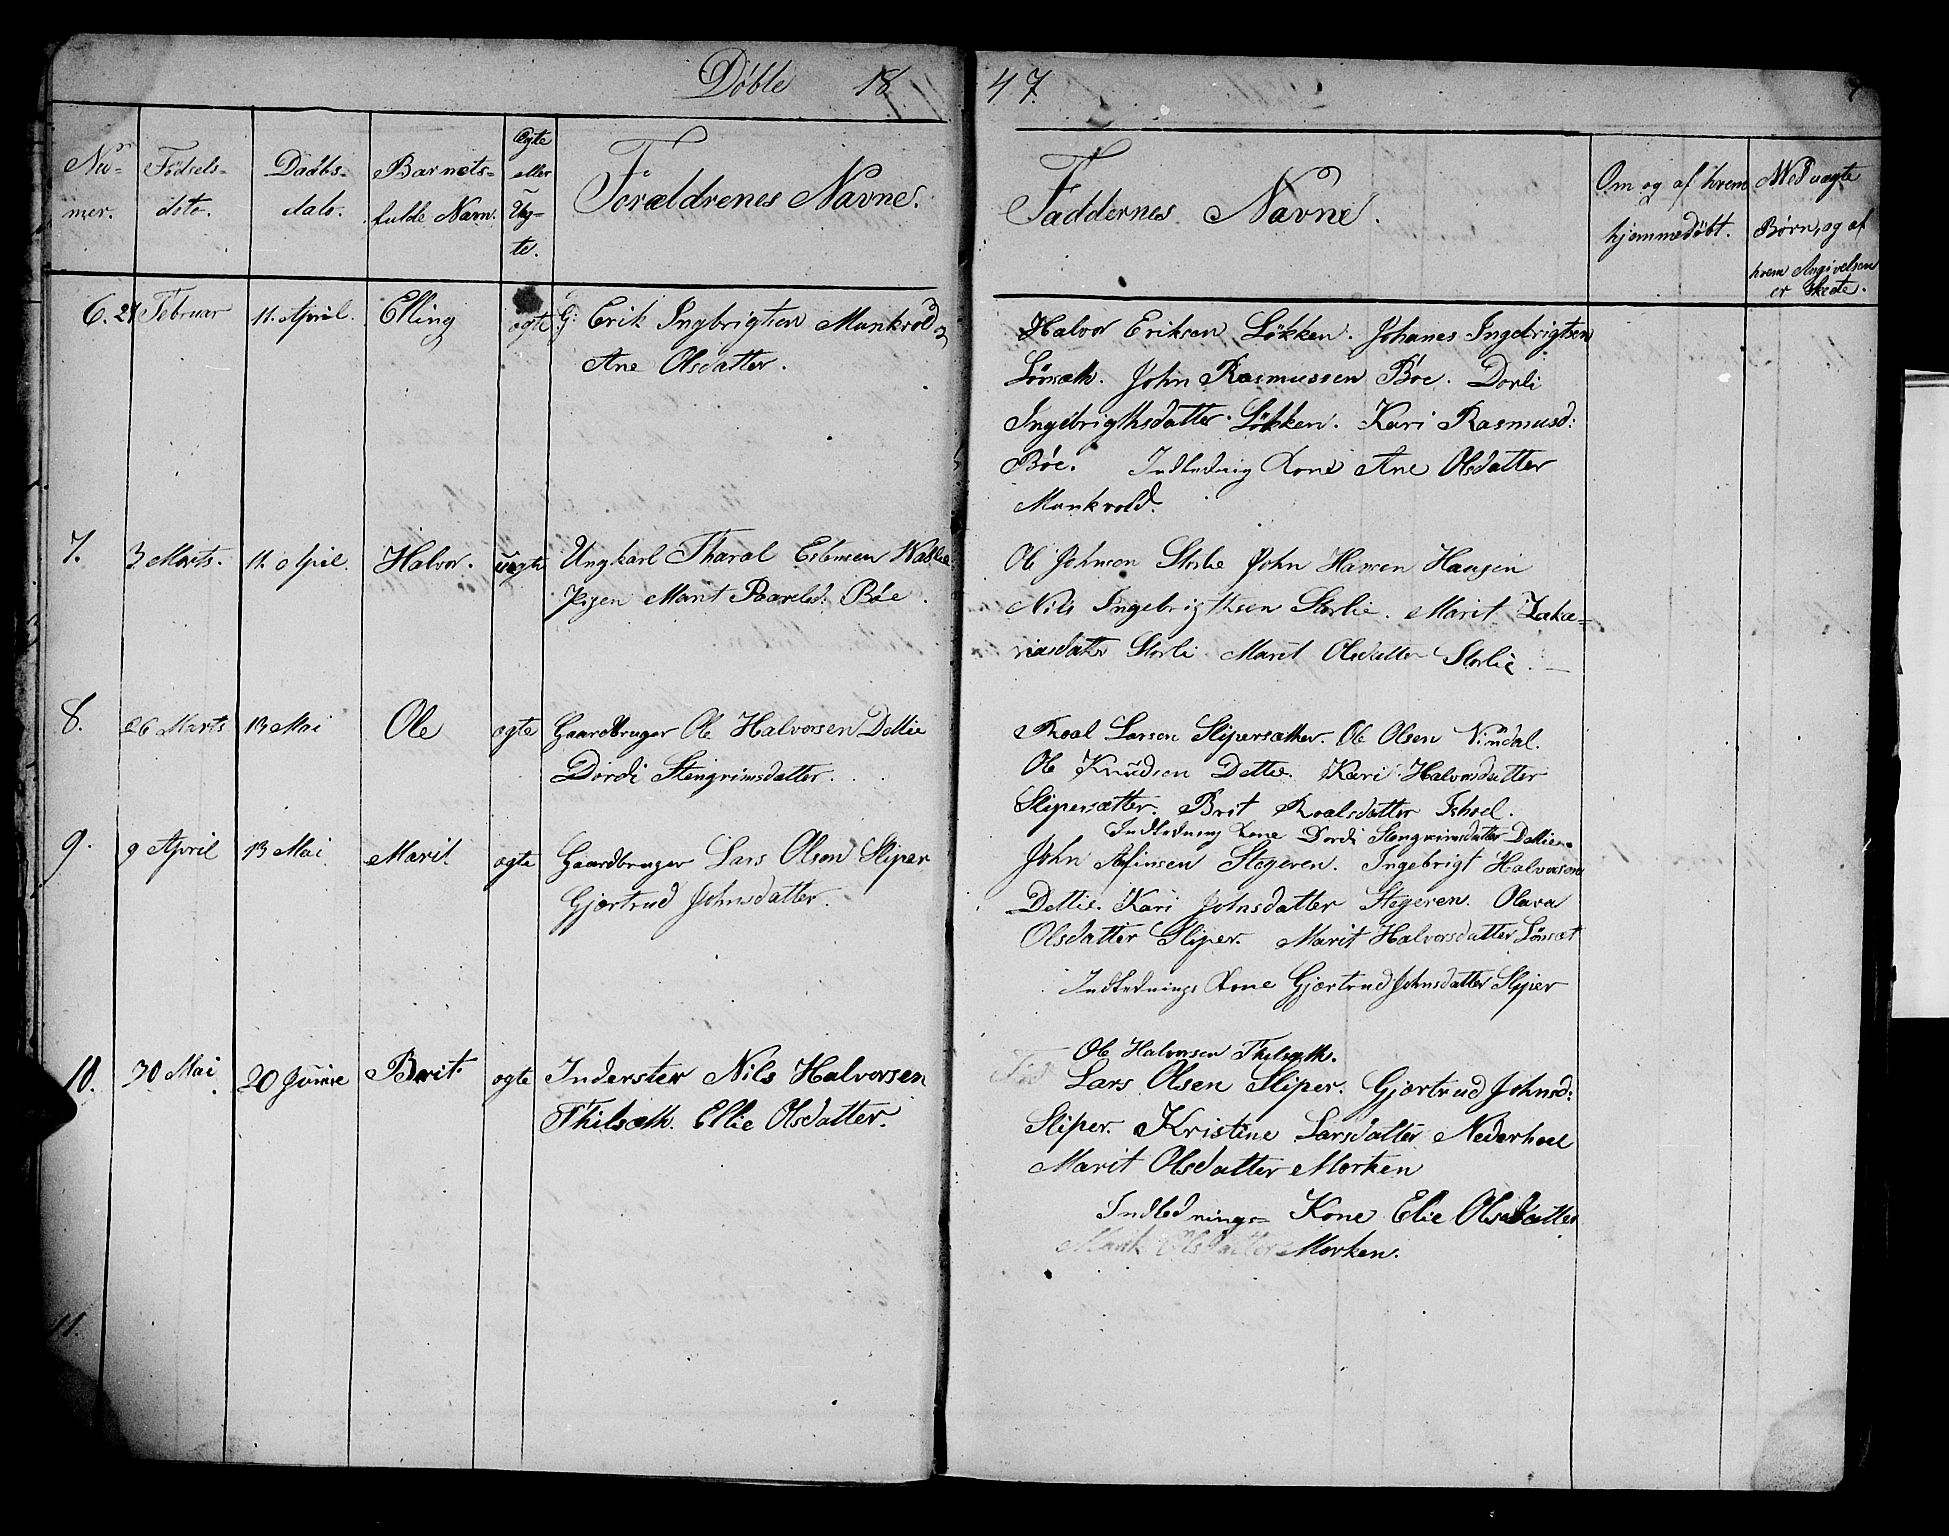 Døbte 1847.
Nu-
mer.
Fødsels-
dato.
Daabs-
dato.
Barnets-
fulde Navn.
Ægte
eller
Uæg-
te.
Forældrenes Navne.
Faddernes Navne.
Om og af hvem
hjemmedøbt.
Med uægte
Børn, og af
hvem Angivelsen
er skede.
6. 21 Februar 11. April. Elling ægte Gj: Erik Ingbrigtsen Mankvold
Ane Olsdatter.
Halvor Eriksen Løkken. Johanes Ingebrigtsen
Lønsæth. John Rasmussen Bøe. Dorli
Ingebrigthsdatter Løkken. Kari Rasmusd:
Bøe. Indledning Kone Ane Olsdatter
Mankvold.
7. 3 Marts. 11. April. Halvor. uægte Ungkarl Tharal Estensen
Pigen Marit Paavelsd: Bøe.
Ole Johnson Storlie John Hansen Haugen
Nils Ingebrigthsen Storlie. Marit Zaka-
riasdatter Storli Marit Olsdatter Storlie.
8. 26 Marts 13 Mai Ole ægte Gaardbruger Ole Halvorsen Detlie
Dordi Stengrimsdatter.
Roal Larsen Slipersæther. Ole Olsen Vindal.
Ole Knudsen Detlie. Kari Halvorsdatter
Slipersætter. Brit Roalsdatter Ishoel.
Indledning Kone Dordi Stengrimsdatter Detlien
9. 9 April 13 Mai Marit ægte Gaardbruger Lars Olsen Sliper
Gjertrud Johnsdatter.
John Arfinsen Stegeren. Ingebrigt Halvorsen
Detlie. Kari Johnsdatter Stegeren. Olava
Olsdatter Sliper. Marit Halvorsdatter Lønset
Indlednings Kone Gjertrud Johnsdatter Sliper
10. 30 Mai 20 Junie Berit ægte Inderster Nils Halvorsen
Thilsæth. Ellie Olsdatter.
Ole Halvorsen Thilseth.
Lars Olsen Sliper. Gjertrud Johnsd:
Sliper. Kristine Larsdatter Nederhoel
Marit Olsdatter Morken
Indlednings- Kone Elie Olsdatter
Marit Olsdatter Morken.
11.